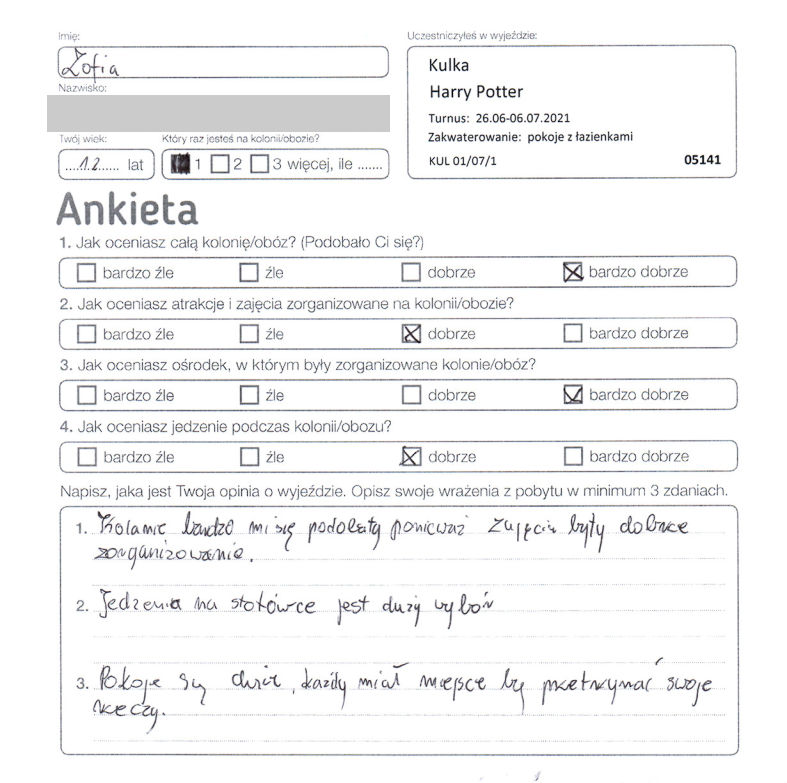 Imię:
Zofia
Nazwisko:
Twój wiek: Który raz jesteś na kolonii/obozie?
....12..... lat 1 2 3 więcej, ile .......
Uczestniczyłeś w wyjeździe:
Kulka
Harry Potter
Turnus: 26.06-06.07.2021
Zakwaterowanie: pokoje z łazienkami
KUL 01/07/1 05141
Ankieta
1. Jak oceniasz całą kolonię/obóz? (Podobało Ci się?)
bardzo źle źle dobrze bardzo dobrze
2. Jak oceniasz atrakcje i zajęcia zorganizowane na kolonii/obozie?
bardzo źle źle dobrze bardzo dobrze
3. Jak oceniasz ośrodek, w którym były zorganizowane kolonie/obóz?
bardzo źle źle dobrze bardzo dobrze
4. Jak oceniasz jedzenie podczas kolonii/obozu?
bardzo źle źle dobrze bardzo dobrze
Napisz, jaka jest Twoja opinia o wyjeździe. Opisz swoje wrażenia z pobytu w minimum 3 zdaniach.
1. bardzo mi się podobały ponieważ zajęcia były dobrze
zorganizowanie.
2. Jedzenia na stołówce jest duży wybór
3. Pokoje są duże, każdy miał miejsce by przetrzymać swoje
rzeczy.